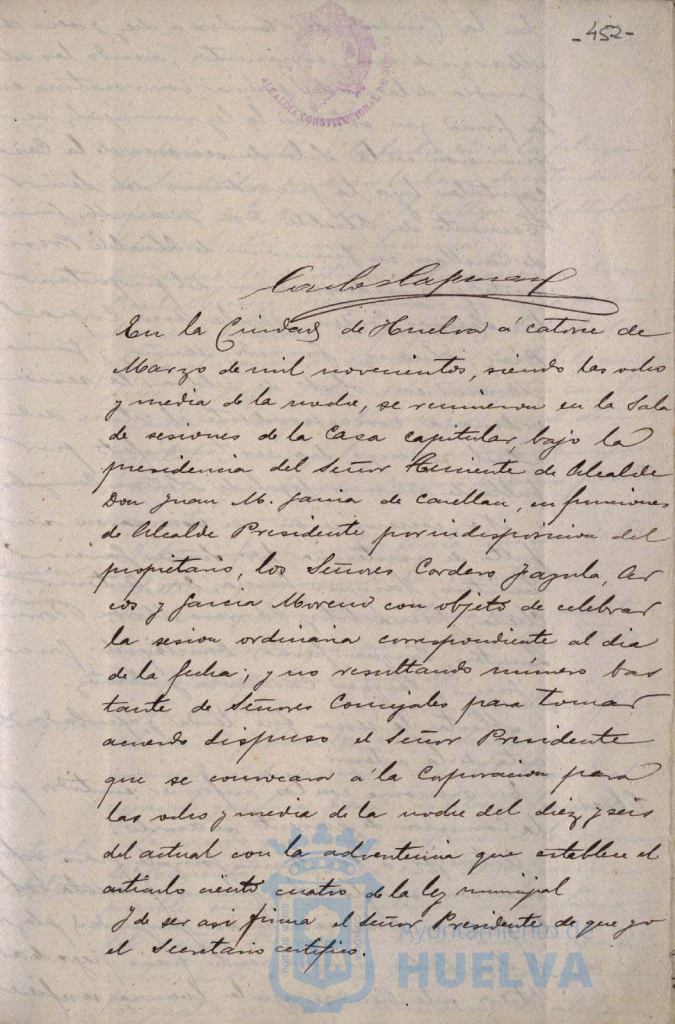 -452-
ALCALDIA CONSTITUCIONAL DE HUELVA
En la Ciudad de Huelva á catorce de
Marzo de mil novecientos, siendo las ocho
y media de la noche, se reunieron en la Sala
de sesiones de la Casa capitular, bajo la
presidencia del Señor Teniente de Alcalde
Don Juan M. Garcia de Casellan, en funciones
de Alcalde Presidente por indisposicion del
propietario, los Señores Cordero, Jagula, Ar
cos y Garcia Moreno con objeto de celebrar
la sesion ordinaria correspondiente al dia
de la fecha; y no resultando número bas
tante de Señores Concejales para tomar
acuerdo dispuso el Señor Presidente
que se convocara á la Corporacion para
las ocho y media de la noche del diez y seis
del actual con la advertencia que establece el
articulo ciento cuatro de la ley municipal
Y de ser asi firma el Señor Presidente de que yo
el Secretario certifico.
Ayuntamiento de
HUELVA